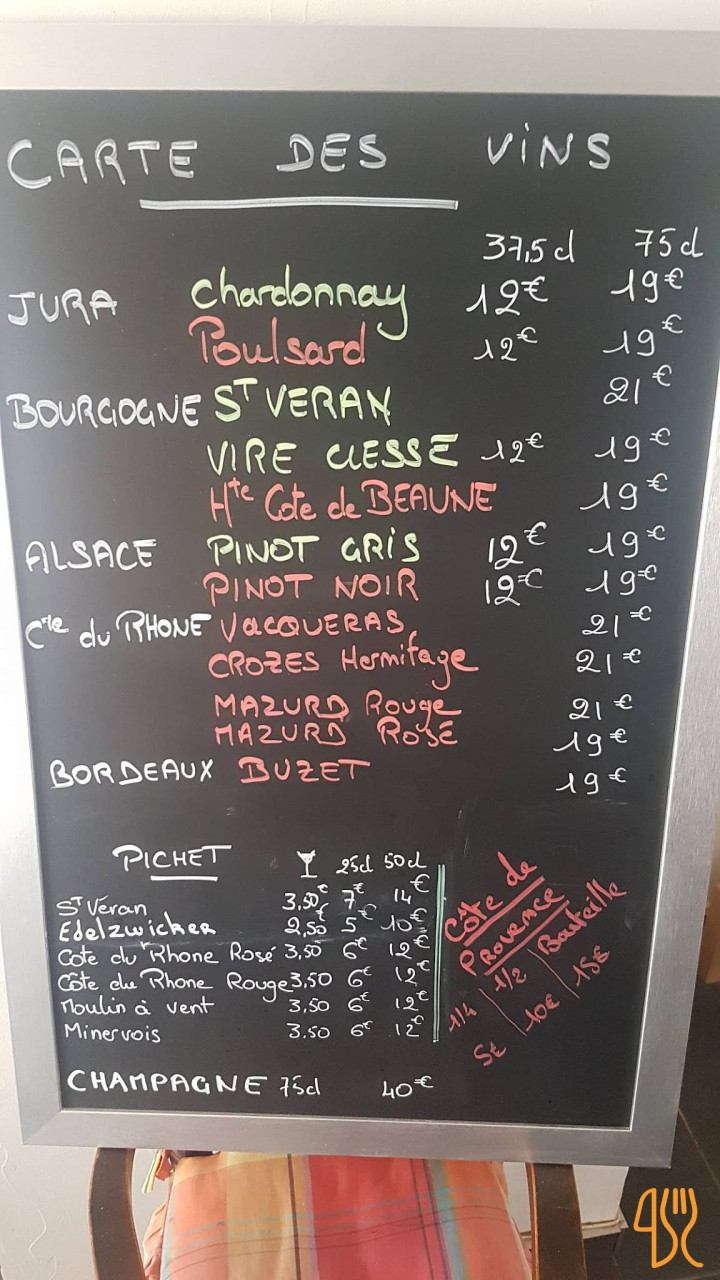 CARTE DES VINS
37,5 cl 75 cl
JURA Chardonnay 12€ 19€
Poulsard 12€ 19€
BOURGOGNE ST VERAN 21€
VIRE CLESSE 12€ 19€
Hte Cote de BEAUNE 19€
ALSACE PINOT GRIS 12€ 19€
PINOT NOIR 12€ 19€
Cte du RHONE VACQUERAS 21€
CROZES Hermitage 21€
MAZURD Rouge 21€
MAZURD ROSÉ 19€
BORDEAUX BUZET 19€
PICHET 25cl 50cl
ST Véran 3,50€ 7€ 14€
Edelzwicker 2,50€ 5€ 10€
Cote du Rhone Rosé 3,50 6€ 12€
Côte du Rhone Rouge 3,50 6€ 12€
Moulin à vent 3,50 6€ 12€
Minervois 3.50 6€ 12€
CHAMPAGNE 75cl 40€
Côte de
PROVENCE
1/4 1/2 Bouteille
5€ 10€ 15€